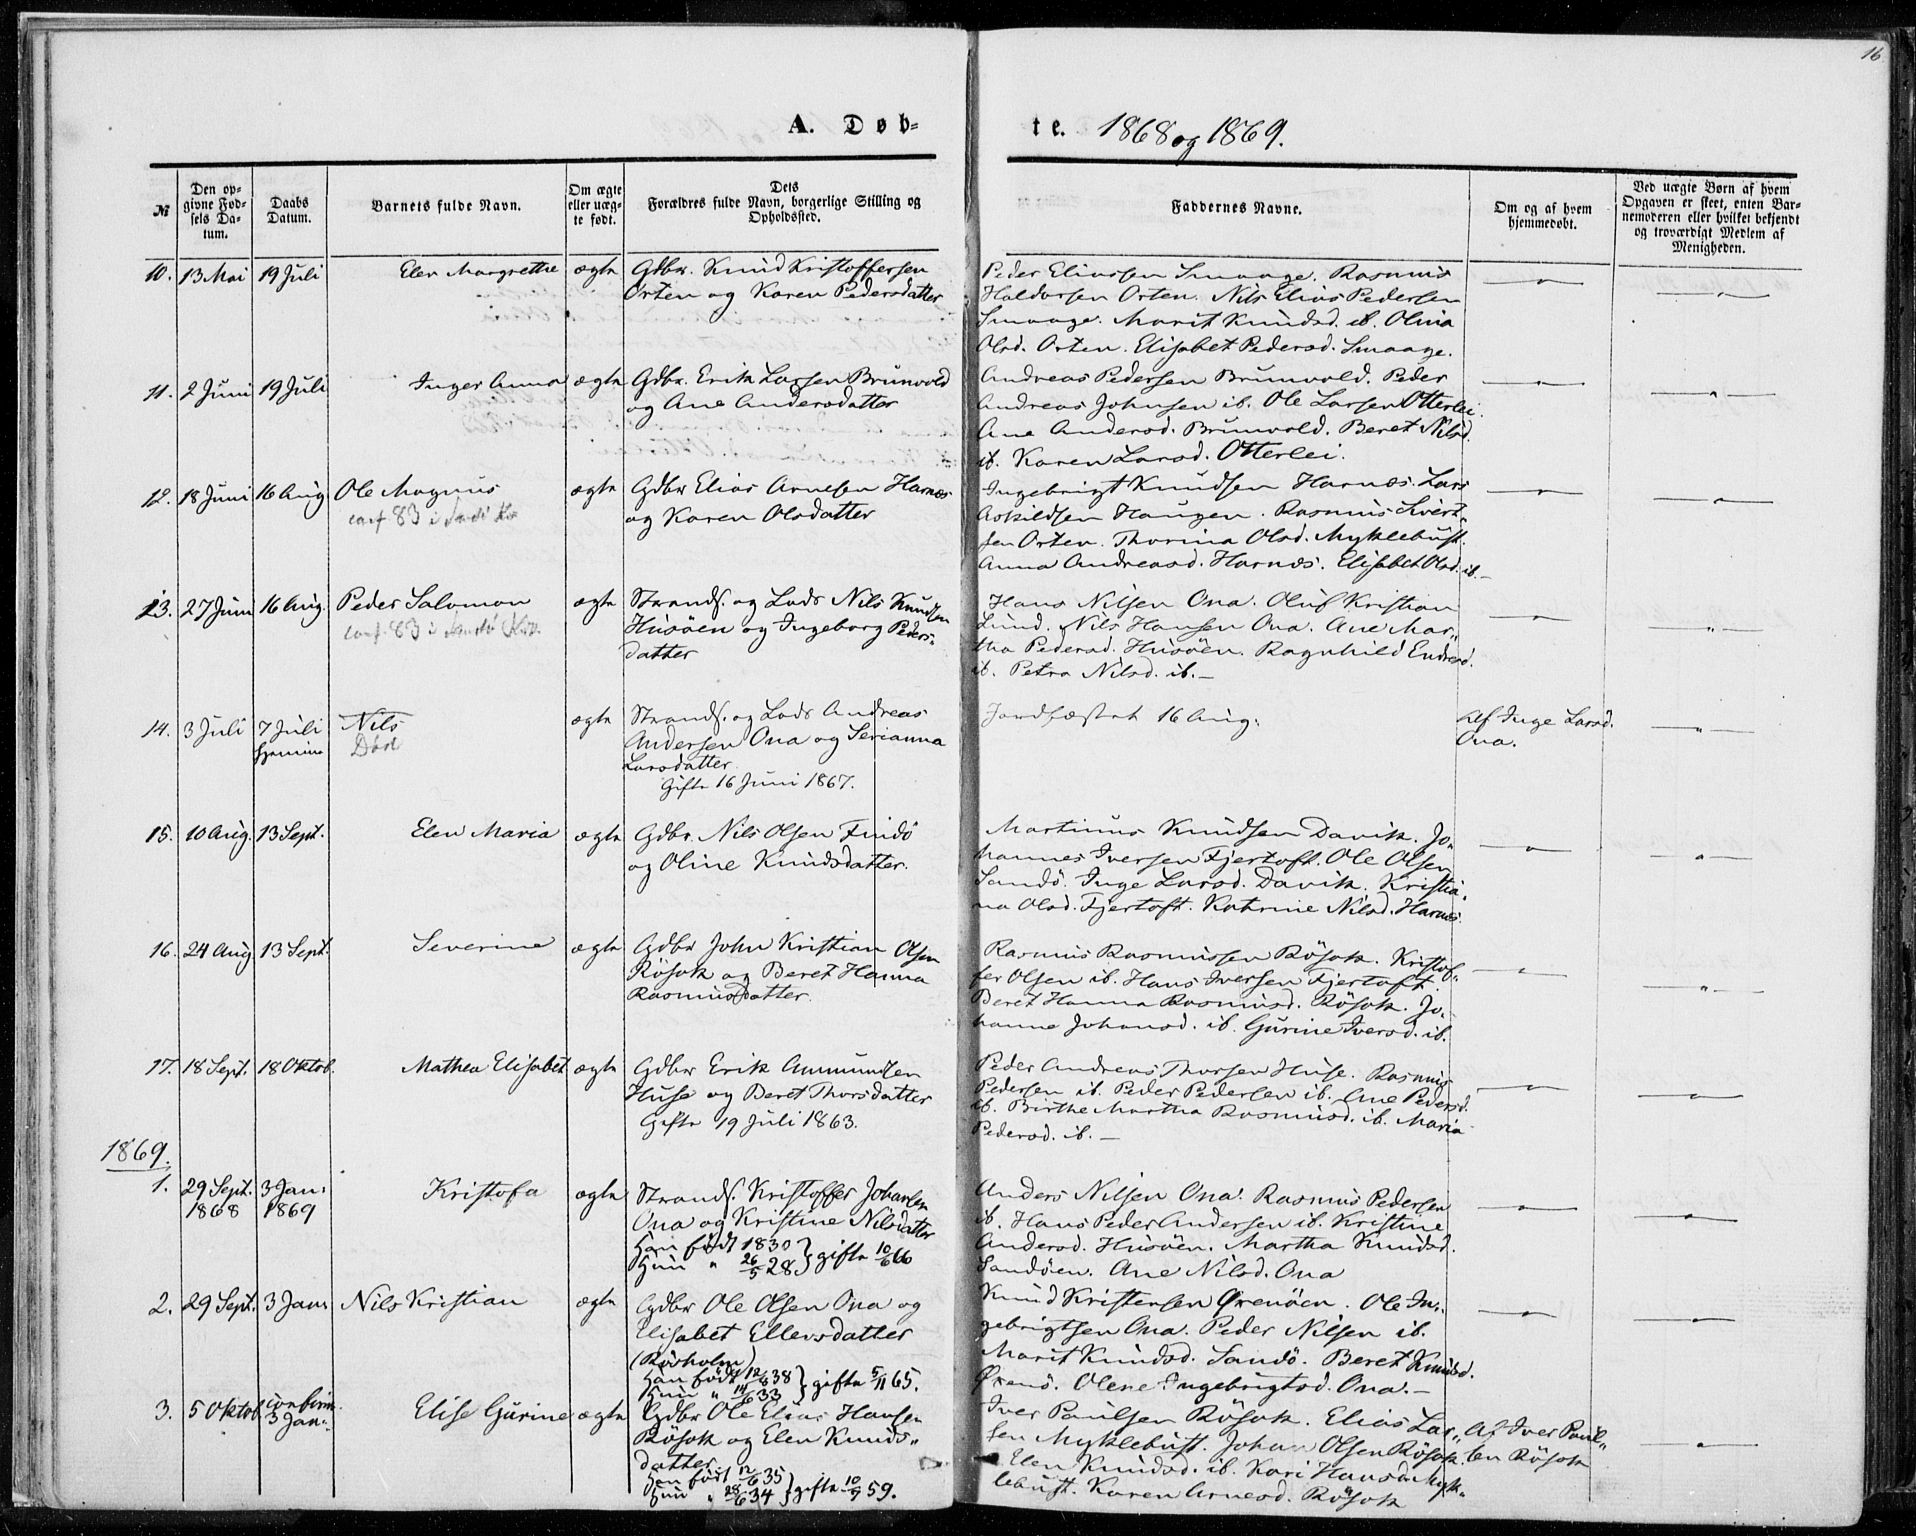 16
A. Døb-
te. 1868 og 1869.
№
Den op-
givne Fød-
sels Da-
tum.
Daabs
Datum.
Barnets fulde Navn.
Om ægte
eller uæg-
te født.
Dets
Forældres fulde Navn, borgerlige Stilling og
Opholdssted.
Faddernes Navne.
Om og af hvem
hjemmedøbt.
Ved uægte Børn af hvem
Opgaven er skeet, enten Bar-
nemoderen eller hvilket bekjendt
og troværdigt Medlem af
Menigheden.
10. 13 Mai 19 Juli Elen Margrethe ægte Gdbr. Knud Kristoffersen
Orten og Karen Pedersdatter
Peder Eliassen Smaage. Rasmus
Haldorsen Orten. Nils Elias Pedersen
Smaage. Marit Knudsd. ib. Olina
Olsd. Orten. Elisabet Pedersd. Smaage.
11. 2 Juni 19 Juli Inger Anna ægte Gdbr. Erik Larsen Brunvold
og Ane Andersdatter
Andreas Pedersen Brunvold. Peder
Andreas Johnsen ib. Ole Larsen Otterlei.
Ane Andersd. Brunvold. Beret Nilsd.
ib. Karen Larsd. Otterlei.
12. 18 Juni 16 Aug. Ole Magnus ægte Gdbr Elias Arnesen Harnæs
conf 83 i Sandø K
og Karen Olsdatter
Ingebrigt Knudsen Harnæs. Lars
Askildsen Haugen. Rasmus Sivert-
sen Orten. Thorina Olsd. Myklebust.
Anna Andreasd. Harnæs. Elisabet Olsd. ib.
13. 27 Juni 16 Aug. Peder Salomon ægte Strands. og Lods Nils Knudsen
conf. 83 i Sandø K
Husöen og Ingeborg Peders-
datter
Hans Nilsen Ona. Oluf Kristian
Lund. Nils Hansen Ona. Ane Mar-
tha Pedersd. Husöen. Ragnhild Endresd.
ib. Petra Nilsd. ib. —
14. 3 Juli 7 Juli Nils ægte Strands. og Lods Andreas
hjemme Död
Andersen Ona og Serianna
Larsdatter
Gifte 16 Juni 1867.
Jordfæstet 16 Aug.
Af Inge Larsd.
Ona.
15. 10 Aug. 13 Sept. Elen Maria ægte Gdbr. Nils Olsen Findö
og Oline Knudsdatter.
Martinus Knudsen Davik. Jo-
hannes Iversen Fjertoft. Ole Olsen
Sandö. Inge Larsd. Davik. Kristia-
na Olsd. Fjertoft. Katrine Nilsd. Harnæs.
16. 24 Aug. 13 Sept. Severine ægte Gdbr John Kristian Olsen
Rösok og Beret Hanna
Rasmusdatter.
Rasmus Rasmussen Rösok. Kristof-
fer Olsen ib. Hans Iversen Fjertoft.
Beret Hanna Rasmusd. Rösok. Jo-
hanne Johansd. ib. Gurine Iversd. ib.
17. 18 Sept. 18 Oktob. Mathea Elisabet ægte Gdbr Erik Ammundsen
Huse og Beret Thorsdatter
Gifte 19 Juli 1863.
Peder Andreas Thorsen Huse. Rasmus
Pedersen ib. Peder Pedersen ib. Ane Pedersd.
ib. Birthe Martha Rasmusd. ib. Maria
Pedersd. ib. —
1869.
1. 29 Sept. 3 Jan: Kristofa ægte Strands. Kristoffer Johansen
1868 1869
Ona og Kristine Nilsdatter
Han født 1830 } gifte 10/6 66
Hun " 26/5 28
Anders Nilsen Ona. Rasmus Pedersen
ib. Hans Peder Andersen ib. Kristine
Andersd. Husöen. Martha Knudsd.
Sandöen. Ane Nilsd. Ona
2. 29 Sept. 3 Jan: Nils Kristian ægte Gdbr Ole Olsen Ona og
Elisabet Ellevsdatter
(Rösholm)
Han født 12/8 38 } gifte 5/11 65.
Hun " 14/6 33
Knud Kristensen Örenöen. Ole In-
gebrigtsen Ona. Peder Nilsen ib.
Marit Knudsd. Sandö. Beret Knudsd.
Örenö. Olene Ingebrigtsd. Ona. —
3. 5 Oktob. confirm. Elise Gurine ægte Gdbr Ole Elias Hansen
3 Jan:
Rösok og Elen Knuds-
datter
Han født 12/6 35 } gifte 10/7 59.
Hun " 28/6 34
Iver Paulsen Rösok. Elias Lar-
sen Myklebust. Johan Olsen Rösok.
Elen Knudsd. ib. Kari Hansd. Myk-
lebust. Karen Arnesd. Rösok
Af Iver Paul-
sen Rösok